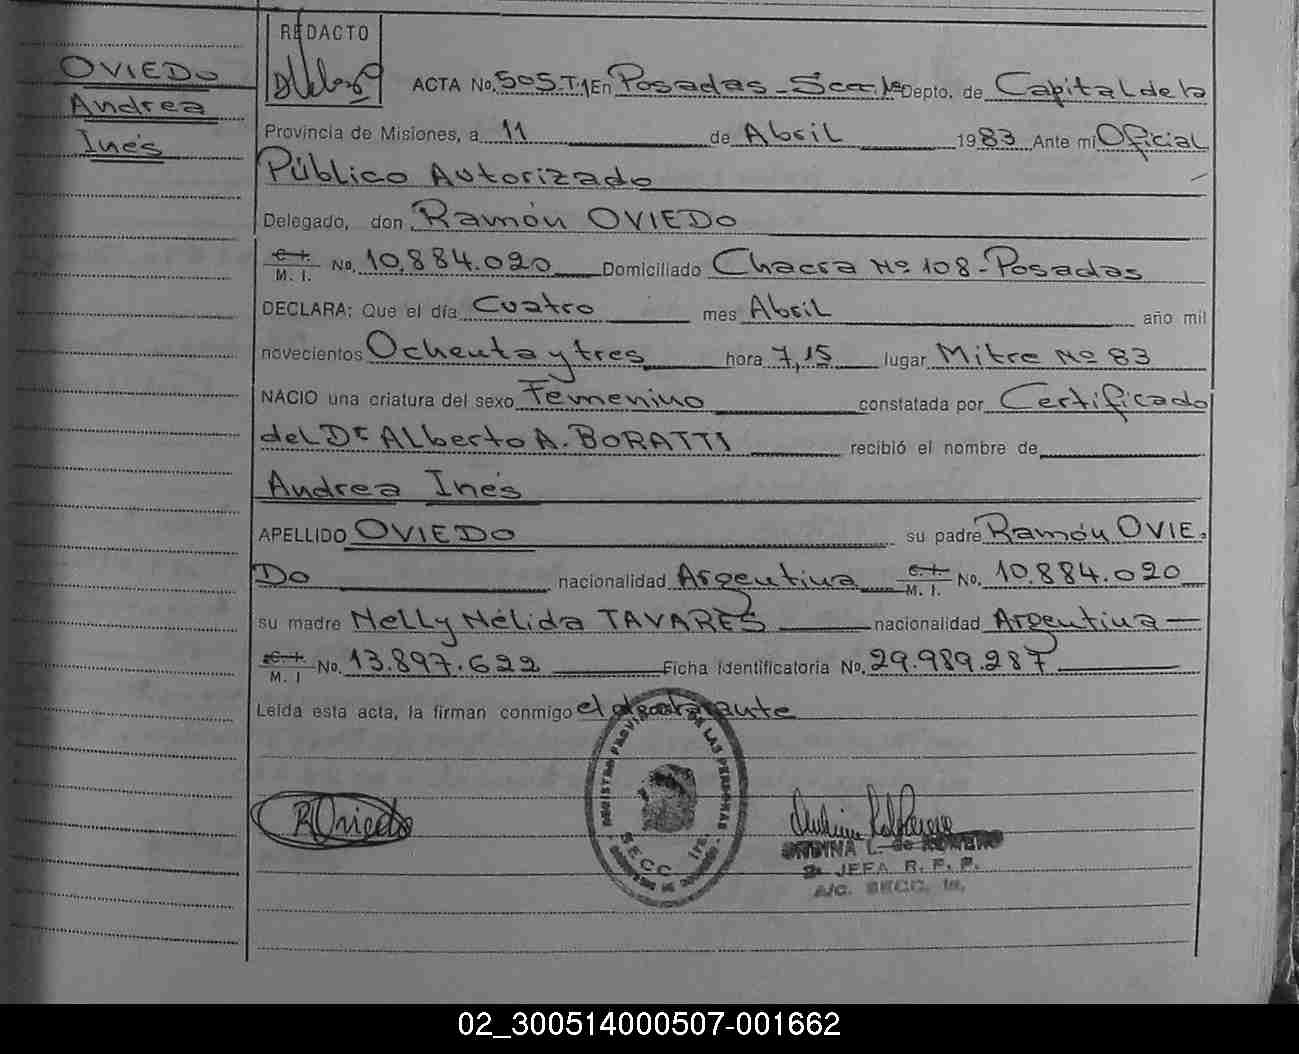 OVIEDO
Andrea
Inés
REDACTO
ACTA No. 505-T.1 En Posadas - Secc. 1a Depto. de Capital de la
Provincia de Misiones, a 11 de Abril 1983 Ante mi Oficial
Público Autorizado
Delegado, don Ramón OVIEDO
C. I.
M. I. No. 10.884.020 Domiciliado Chacra No 108 - Posadas
DECLARA: Que el día Cuatro mes Abril año mil
novecientos Ochenta y tres hora 7,15 lugar Mitre No 83
NACIO una criatura del sexo Femenino constatada por Certificado
del Dr Alberto A. BORATTI recibió el nombre de
Andrea Inés
APELLIDO OVIEDO su padre Ramón OVIE-
DO nacionalidad Argentina C. I. M. I. No. 10.884.020
su madre Nelly Nélida TAVARES nacionalidad Argentina
C. I. M. I No. 13.897.622 Ficha Identificatoria No. 29.989.287
Leída esta acta, la firman conmigo el declarante
REGISTRO PROVINCIAL DE LAS PERSONAS
SECC. 1ra.
ROviedo
L. de
JEFA R. P. P.
A/C. SECC. 1a.
02_300514000507-001662